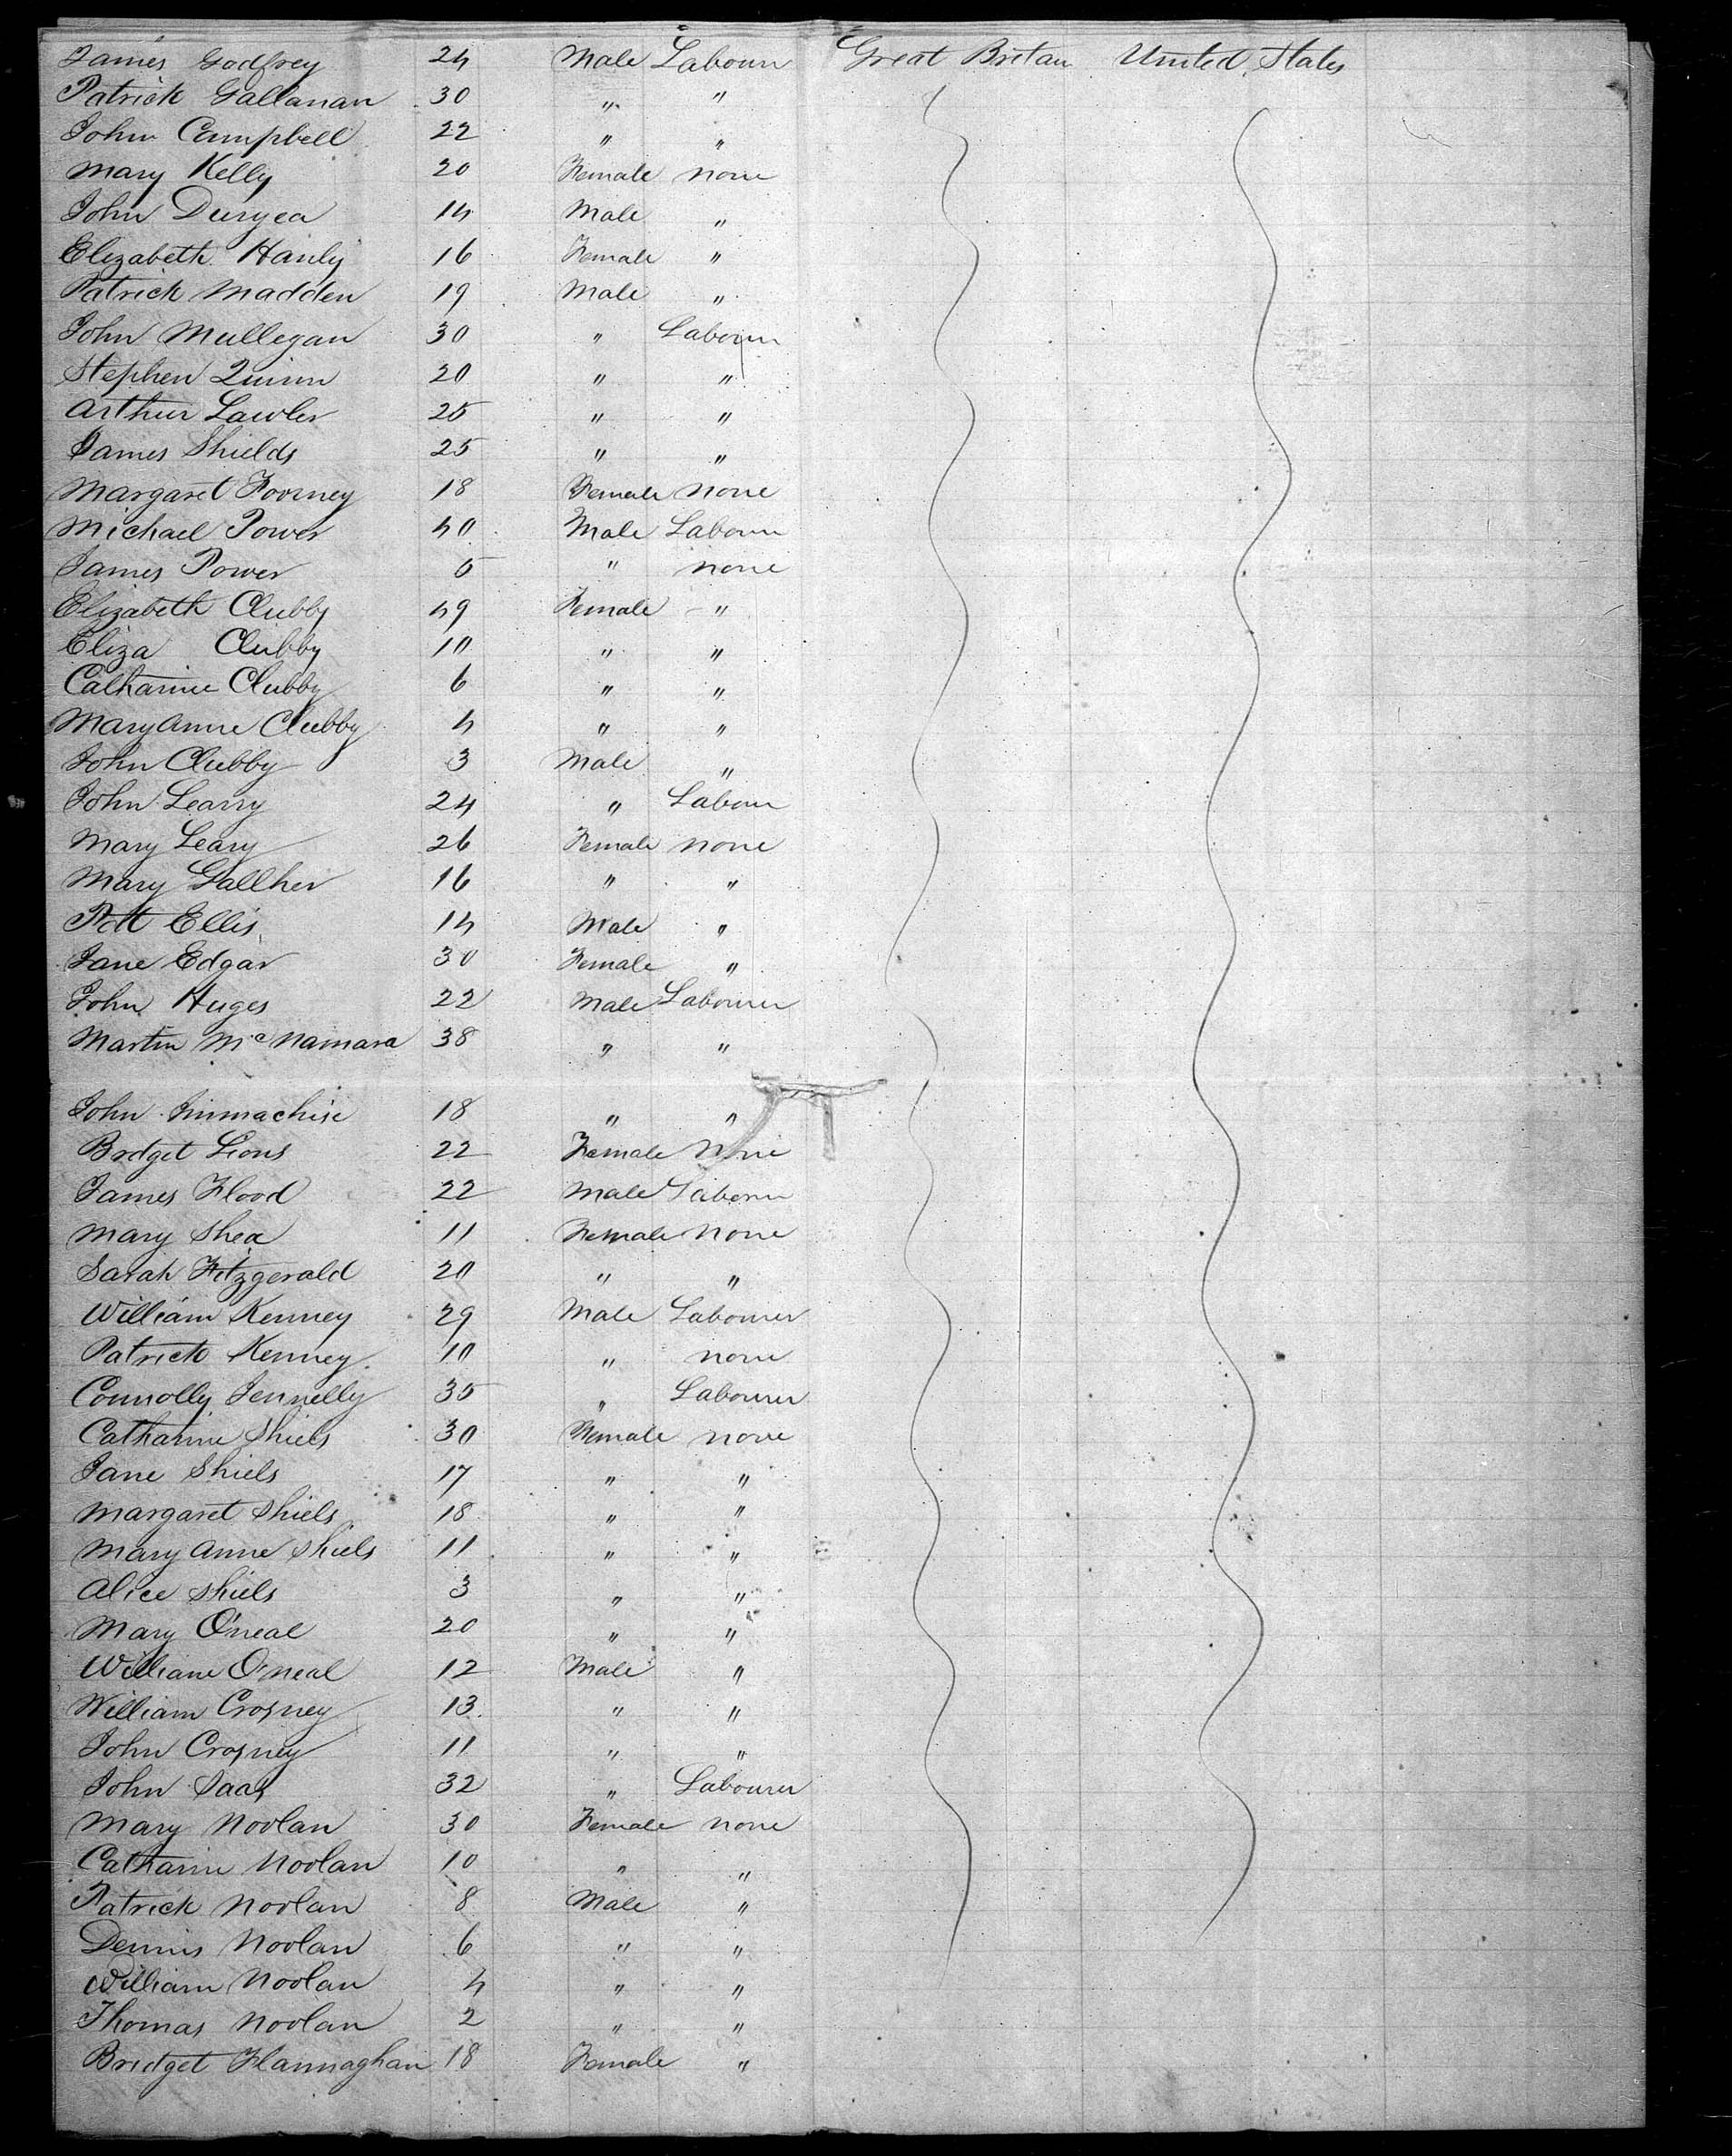 James Godfrey 24 Male Labourr Great Britan United States
Patrick Gallanan 30 " "
John Campbell 22 " "
Mary Kelly 20 Female None
John Duryea 14 Male "
Elizabeth Hanly 16 Female "
Patrick Madden 19 Male "
John Mullegan 30 " Labourr
Stephen Quinn 20 " "
Arthur Lawler 25 " "
James Shields 25 " "
Margaret 18 Female None
Michael Power 40 Male Labourr
James Power 5 " none
Elizabeth Clubby 49 Female "
Eliza Clubby 10 " "
Catharine Clubby 6 " "
Mary Anne Clubby 4 " "
John Clubby 3 Male "
John Learry 24 " Labourr
Mary Leary 26 Female None
Mary Gallher 16 " "
Patt Ellis 14 Male "
Jane Edgar 30 Female "
John Huges 22 Male Labourer
Martin McNamara 38 " "
John 18 " "
Bridget Lions 22 Female None
James Flood 22 Male Labourr
Mary Shea 11 Female None
Sarah Fitzgerald 20 " "
William Kenney 29 Male Labourer
Patrick Kenney 10 " none
Connolly Fennelly 35 " Labourer
Catharine Shiels 30 Female none
Jane Shiels 17 " "
Margaret Shiels 18 " "
Mary Anne Shiels 11 " "
Alice Shiels 3 " "
Mary O'neal 20 " "
William O'neal 12 Male "
William Crosney 13 " "
John Crosney 11 " "
John 32 " Labourer
Mary Noolan 30 Female none
Catharin Noolan 10 " "
Patrick Noolan 8 Male "
Dennis Noolan 6 " "
William Noolan 4 " "
Thomas Noolan 2 " "
Bridget Flannaghan 18 Female "